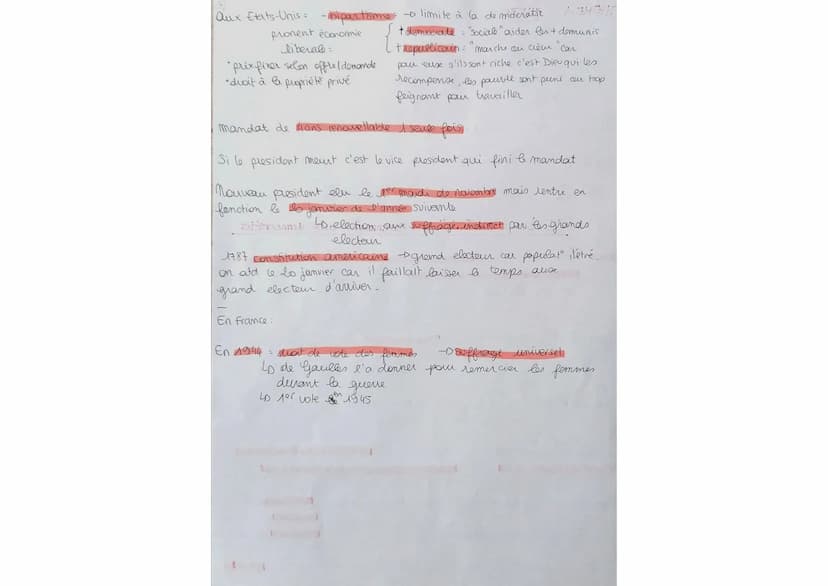 Aux Etats-Unis : - bipartisme → limite à la démocratie
pronent économie
liberale :
• prix fixer selon offre/demande
• droit à la propriété privé
+ démocrate : "social" aider les + demunis
+ republicain : "marche au cieux" car
pour eux s'ils sont riche c'est Dieu qui les
recompense, les pauvres sont puni car trop
feignant pour travailler
mandat de 4 ans renouvellable 1 seule fois
Si le president meurt c'est le vice president qui fini le mandat
Nouveau president elu le 1er mardi de novembre mais rentre en
fonction le 20 janvier de l'année suivante
↳ election aux suffrage indirect par les grands
electeur
1787 constitution américaine → grand electeur car populat°
on atd le 20 janvier car il faillait laisser le temps aux
grand electeur d'arriver.
En France :
En 1944 : droit de vote des femmes → suffrage universel
↳ de Gaulles l'a donner pour remercier les femmes
durant la guerre
↳ 1er vote en 1945